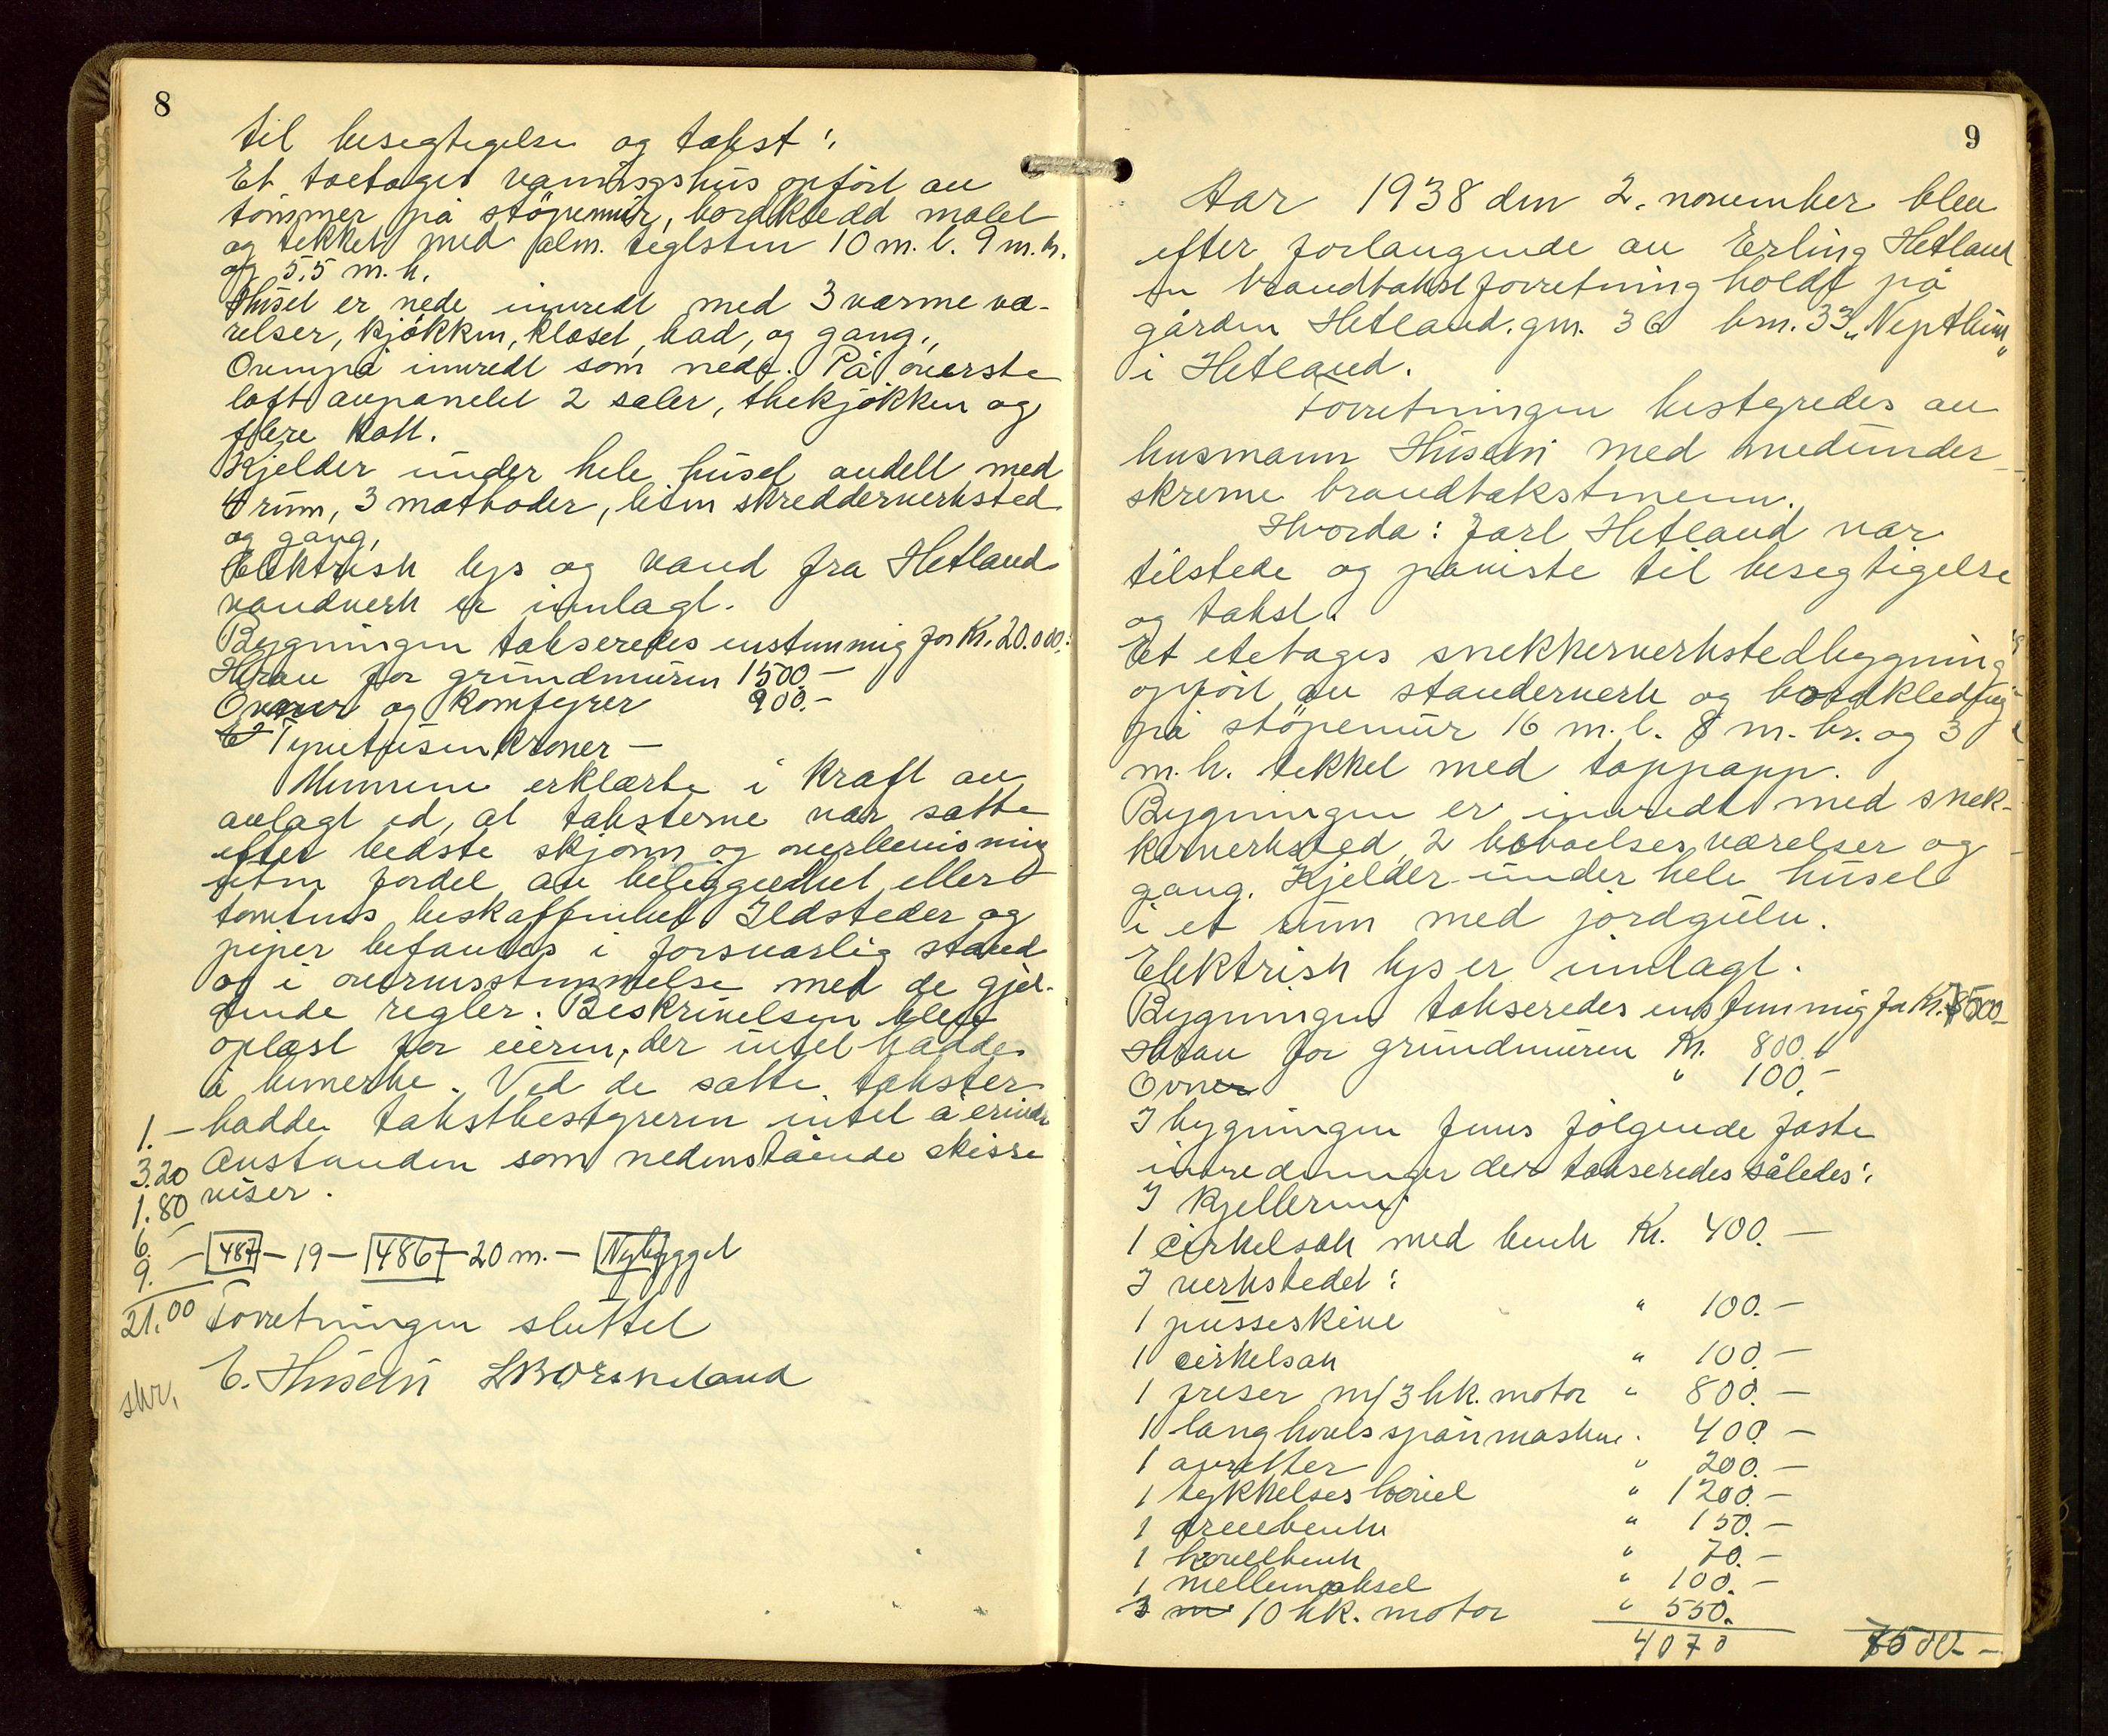 8
til besegtigelse og takst:
Et toetages vaaningshus opfört av
tömmer på stöpemur, bordkledd malet
og tekket med alm. teglsten 10 m. l. 9 m. b.
og 5,5 m. h.
Huset er nede innredt med 3 varme væ-
relser, kjøkken, kloset, bad, og gang,
Ovenpå innredt som nede. På överste
loft avpanelet 2 saler, thekjøkken og
flere kott.
Kjelder under hele huset avdelt med
4 rum, 3 matboder, liten skreddervерksted
og gang,
Elektrisk lys og vand fra Hetland
vandverk er innlagt.
Bygningen takseredes enstemmig for Kr. 20.000.-
Herav for grundmuren 1500.-
Ovner og Komfyrer 900.-
Tyvetusen kroner –
Mennene erklærte i kraft av
avlagt ed, at taksterne var satte
efter bedste skjønn og overbevisning
uten fordel av beliggenhet eller
tomtens beskaffenhet Ildsteder og
piper befandtes i forsvarlig stand
og i overensstemmelse med de gjel-
dende regler. Beskrivelsen blev
oplæst for eieren, der intet hadde
å bemerke. Ved de satte takster
1.- hadde takstbestyreren intet å erindre
3.20 Avstanden som nedenstående skisse
1.80 viser.
6.-
9.- 487 – 19 – 486 – 20 m. – Nybygget
21.00 Forretningen sluttet
skr. E. Husebø
9
Aar 1938 den 2. november blev
efter forlangende av Erling Hetland
en brandtakstforretning holdt på
gården Hetland. gn. 36 bn. 33 „Nepthun"
i Hetland.
Forretningen bestyredes av
husmann Husebø med medunder-
skrevne brandtakstmenn.
Hvorda: Jarl Hetland var
tilstede og påviste til besegtigelse
og takst.
Et etetages snekkerverkstedbygning
opfört av standerverk og bordkledning
på stöpemur 16 m. l. 8 m. br. og 3
m. h. tekket med tappapp.
Bygningen er innredt med snek-
kerverksted, 2 beboelses værelser og
gang. Kjelder under hele huset
i et rum med jordgulv.
Elektrisk lys er innlagt.
Bygningen takseredes enstemmig for Kr. 8500-
Herav for grundmuren Kr. 800.-
Ovner " 100.-
I bygningen finns fölgende faste
innredninger der takseredes således:
I Kjelleren:
1 cirkelsak med benk Kr. 400.-
I verkstedet:
1 pusseskive " 100.-
1 cirkelsak " 100.-
1 freser m/3 hk. motor " 800.-
1 langhovls spånmaskine " 400.-
1 avretter " 200.-
1 tykkelses hövel " 1200.-
1 dreiebenk " 150.-
1 hövelbenk " 70.-
1 mellemaksel " 100.-
10 hk. motor " 550.-
4070 8500-